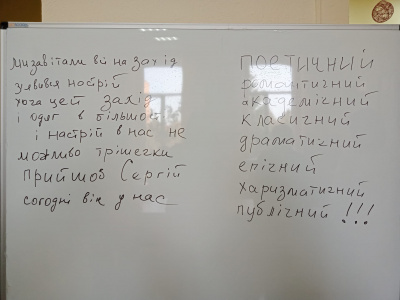 ми завітали ві на захід
з явився настрій
хоча цей захід
і одяг в більшості
і настрій в нас не
можливо трішечки
прийшов Сергій
согодні він у нас
поетичний
романтичний
академічний
класичний
драматичний
епічний
харизматичний
публічний !!!